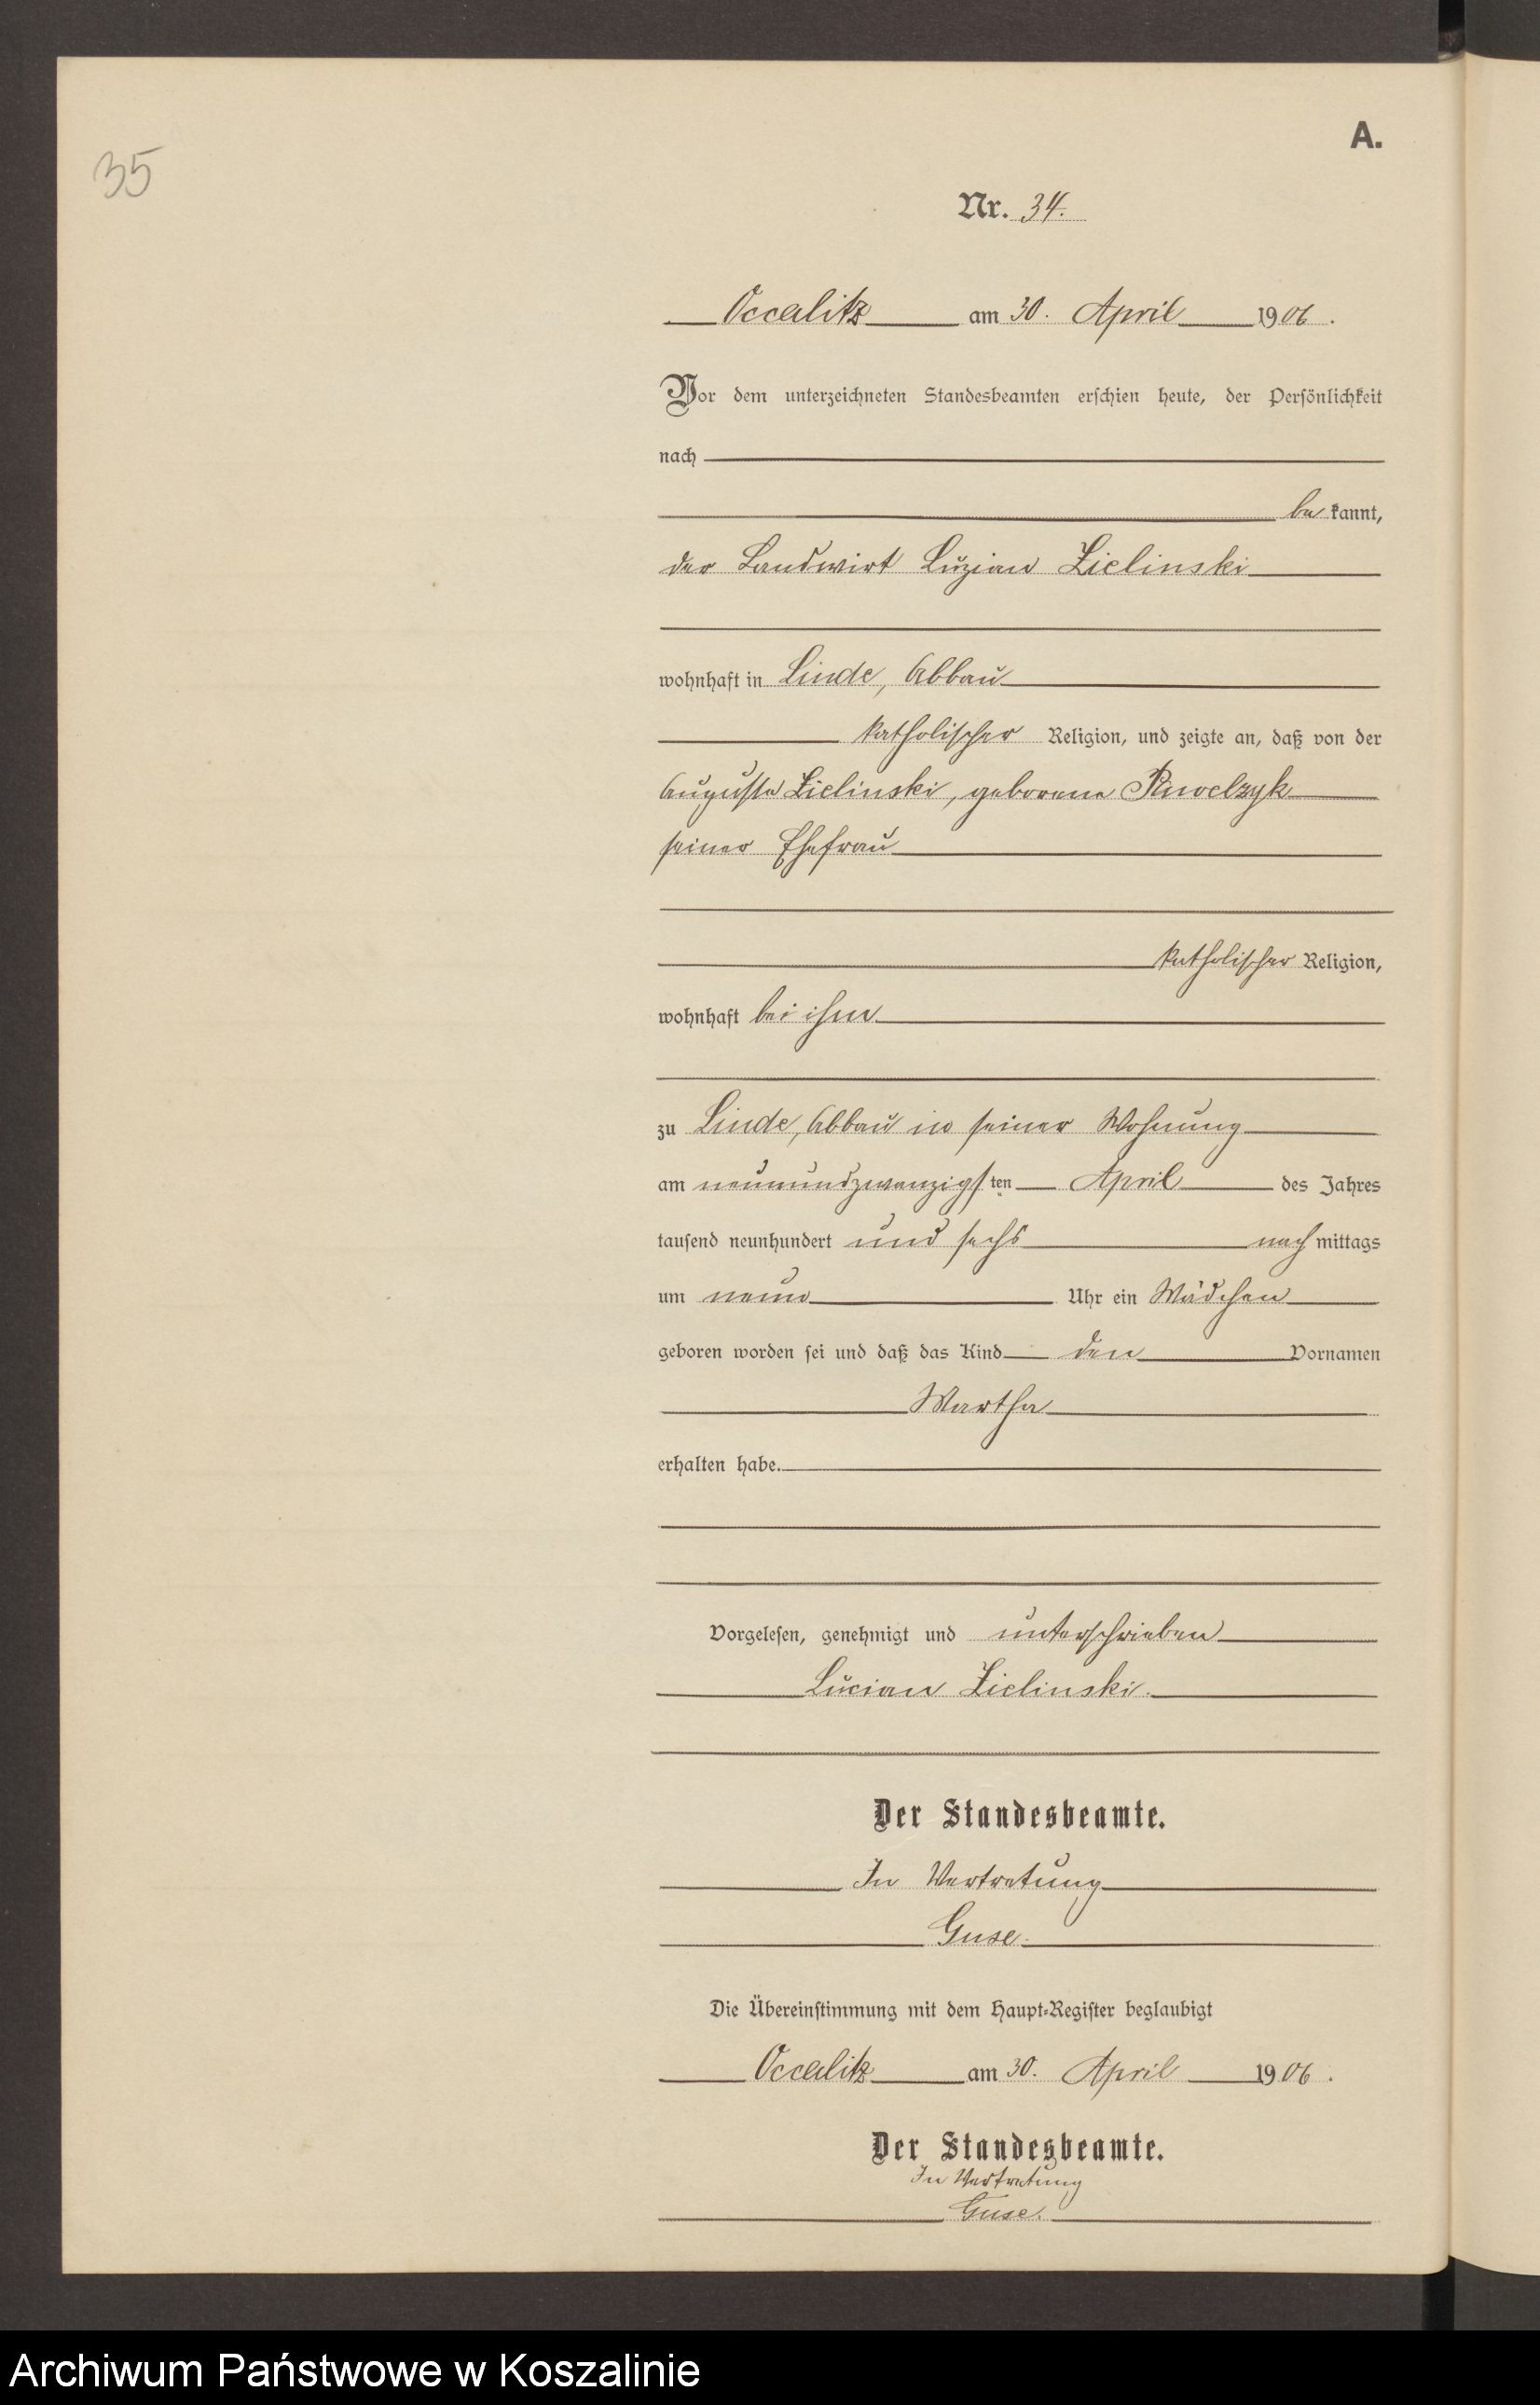 35
A.
Nr. 34.
Occalitz am 30. April 1906.
Vor dem unterzeichneten Standesbeamten erschien heute, der Persönlichkeit
nach
be kannt,
der Landwirt Luzian Zielinski
wohnhaft in Linde, Abbau
katholischer Religion, und zeigte an, daß von der
Auguste Zielinski, geborene
seiner Ehefrau
katholischer Religion,
wohnhaft bei ihm
zu Linde, Abbau in seiner Wohnung
am neunundzwanzigsten April des Jahres
tausend neunhundert und sechs nach mittags
um neun Uhr ein Mädchen
geboren worden sei und daß das Kind den Vornamen
Martha
erhalten habe.
Vorgelesen, genehmigt und unterschrieben
Lucian Zielinski.
Der Standesbeamte.
In Vertretung
Guse.
Die Übereinstimmung mit dem Haupt-Register beglaubigt
Occalitz am 30. April 1906.
Der Standesbeamte.
In Vertretung
Guse.
Archiwum Państwowe w Koszalinie